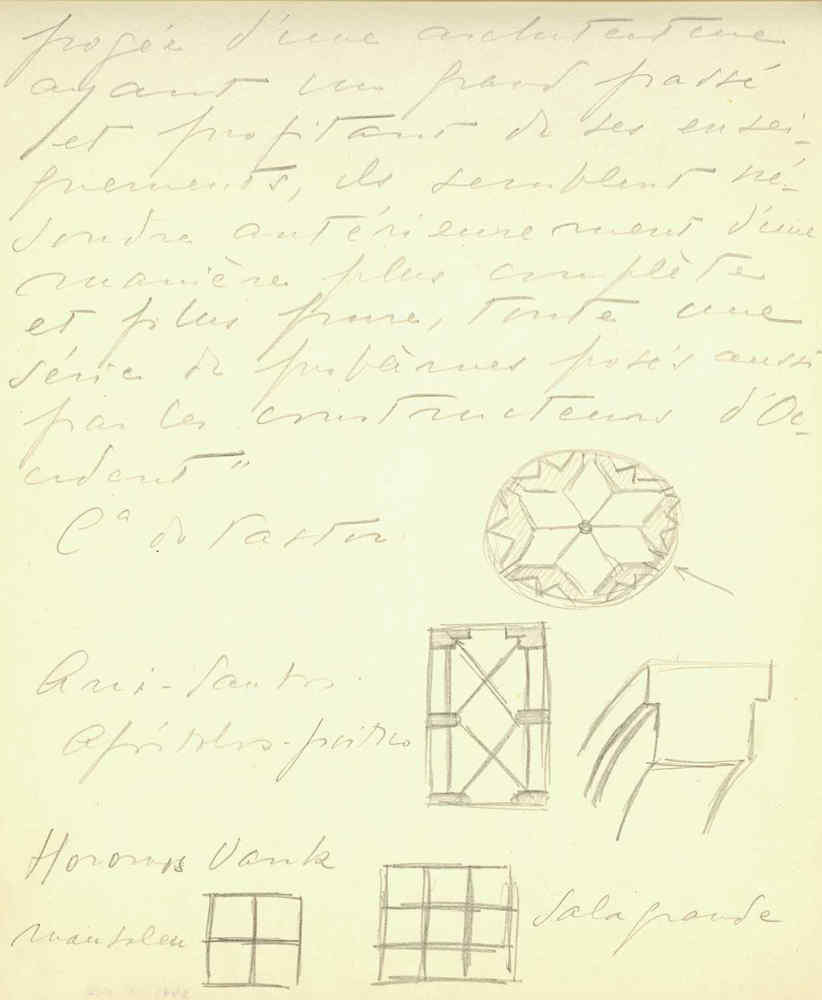 progée d'une architecture
ayant un grand passé
et profitant de ses ensei-
gnements, ils semblent ré-
soudre antérieurement d'une
manière plus complète
et plus pure, toute une
série de problèmes posés aussi
par les constructeurs d'Oc-
cident"
Cª do Pastor
Ani - Santos
Apóstolos - pórtico
Horomos Vank
mausoleu
Sala grande